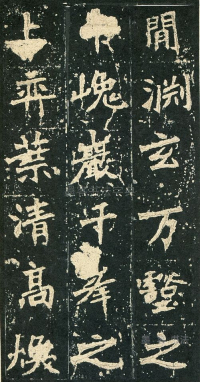 閒渊玄万壑之
下嵬巖千峯之
上弈葉清高煥